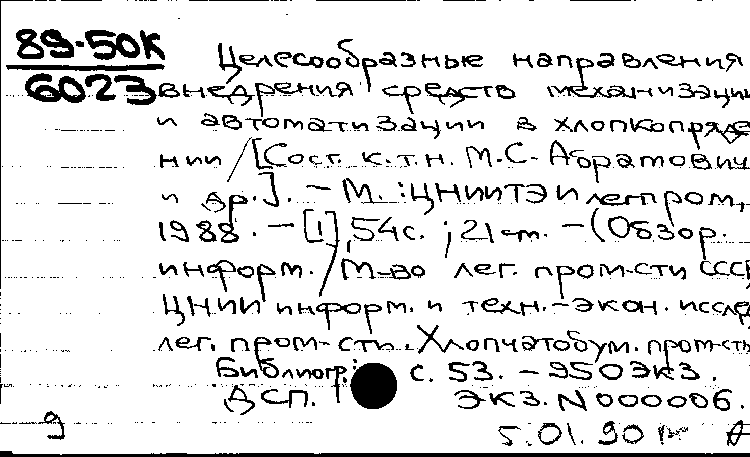 89-50К
6023
Целесообразные направления
внедрения средств механизации
и автоматизации в хлопкопряде-
нии / [Сост. к.т.н. М.С. Абрамович
и др.]. – М. : ЦНИИТЭИлегпром,
1988. – [1], 54 с. ; 21 см. – (Обзор.
информ. / М-во лег. пром-сти СССР,
ЦНИИ информ. и техн.-экон. исслед.
лег. пром-сти. Хлопчатобум. пром-сть
Библиогр.: с. 53. – 950 экз.
ДСП. Экз. N 000006.
9
5.01.90